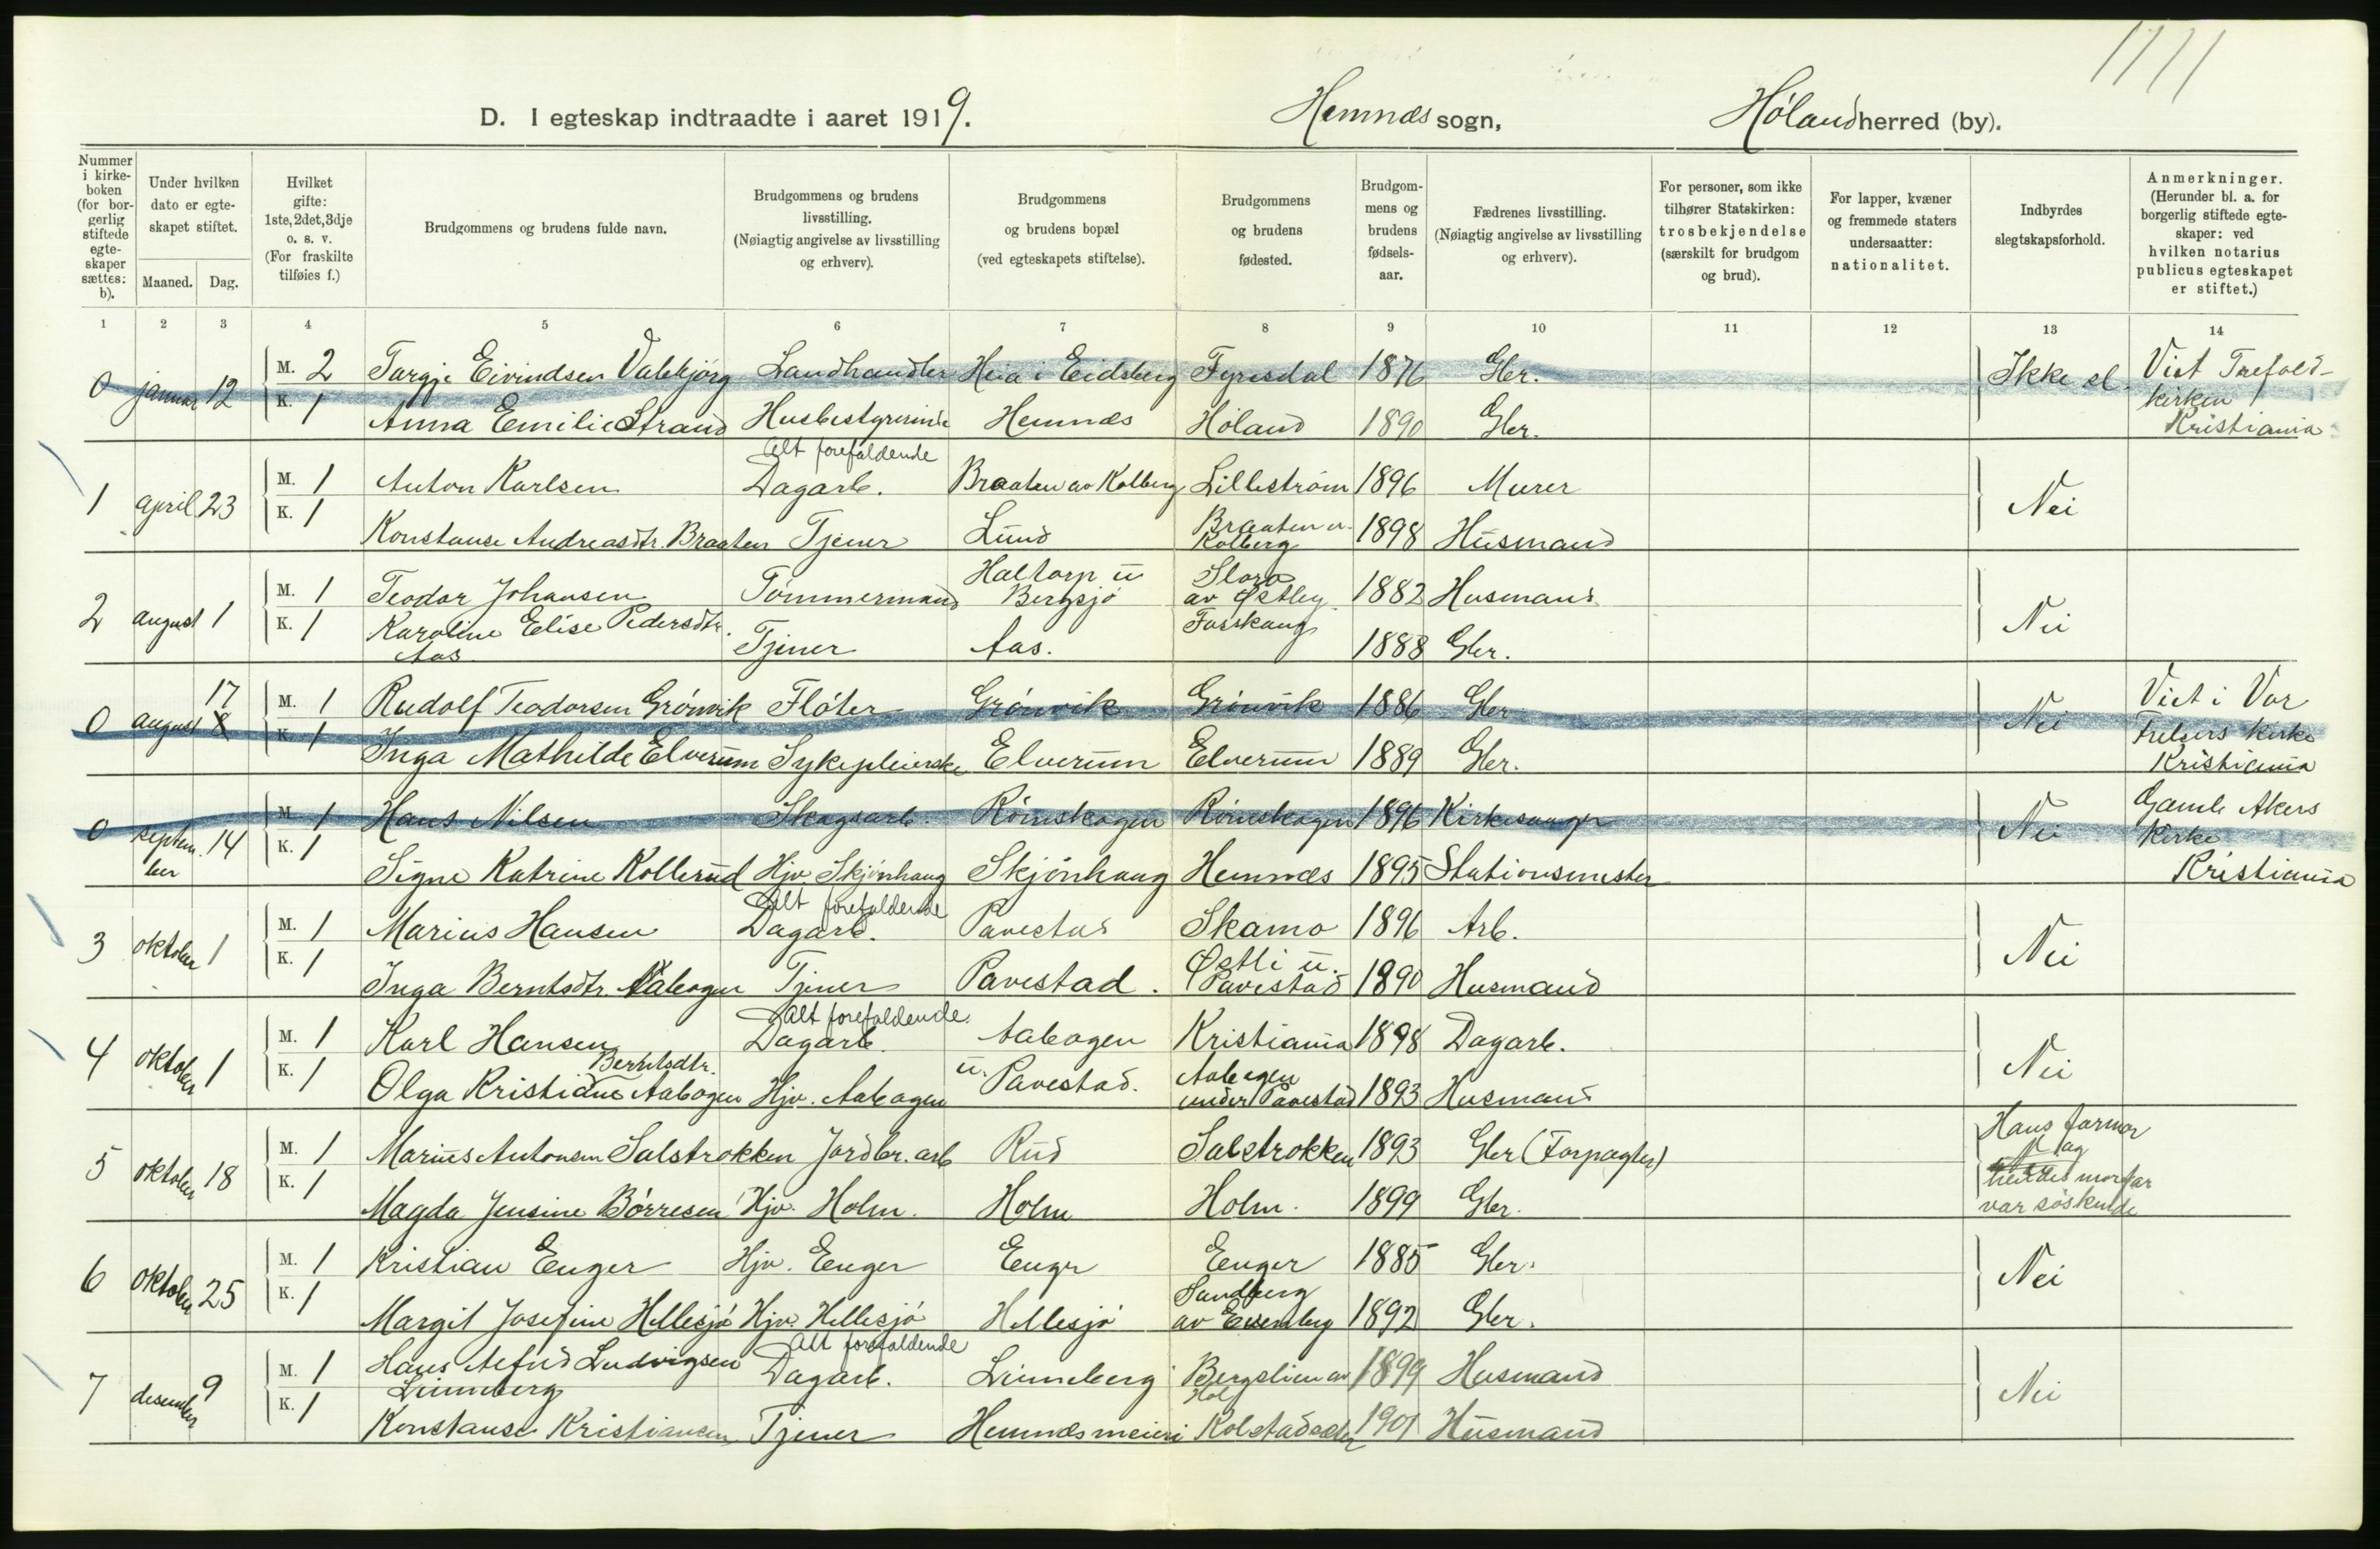 1711
D. I egteskap indtraadte i aaret 1919. Hemnæs sogn, Höland herred (by).
Nummer i kirkeboken (for borgerlig stiftede egteskaper sættes: b).
Under hvilken dato er egteskapet stiftet.
Maaned. Dag.
Hvilket gifte: 1ste, 2det, 3dje o. s. v. (For fraskilte tilføies f.)
Brudgommens og brudens fulde navn.
Brudgommens og brudens livsstilling. (Nøiagtig angivelse av livsstilling og erhverv).
Brudgommens og brudens bopæl (ved egteskapets stiftelse).
Brudgommens og brudens fødested.
Brudgommens og brudens fødselsaar.
Fædrenes livsstilling. (Nøiagtig angivelse av livsstilling og erhverv).
For personer, som ikke tilhører Statskirken: trosbekjendelse (særskilt for brudgom og brud).
For lapper, kvæner og fremmede staters undersaatter: nationalitet.
Indbyrdes slegtskapsforhold.
Anmerkninger. (Herunder bl. a. for borgerlig stiftede egteskaper: ved hvilken notarius publicus egteskapet er stiftet.)
1 2 3 4 5 6 7 8 9 10 11 12 13 14
0 januar 12 M. 2 Targje Eivindsen Valebjørg Landhandler Heia i Eidsberg Fyresdal 1876 Gbr. Ikke sl. Viet Trefold-
kirken
K. 1 Anna Emilie Strand Husbestyrerinde Hemnæs Höland 1890 Gbr. Kristiania
Alt forefaldende
1 april 23 M. 1 Anton Karlsen Dagarb. Braaten av Kolberg Lilleström 1896 Murer Nei
K. 1 Konstanse Andreasdtr. Braaten Tjener Lund Braaten u. Kolberg 1898 Husmand
2 august 1 M. 1 Teodor Johansen Tömmermand Haltorp u Bergsjö Slora av Østby 1882 Husmand Nei
K. 1 Karoline Elise Pedersdtr. Aas Tjener Aas. Fosskaug 1888 Gbr.
0 august 17 8 M. 1 Rudolf Teodorsen Grönvik Flöter Grönvik Grönvik 1886 Gbr Nei Viet i Vor
Frelsers kirke
K. 1 Inga Mathilde Elverum Sykepleierske Elverum Elverum 1889 Gbr. Kristiania
0 septem. 14 M. 1 Hans Nilsen Skogsarb. Römskogen Römskogen 1896 Kirkesanger Nei Gamle Akers
kirke
ber K. 1 Signe Katrine Kollerud Hjv. Skjönhaug Skjönhaug Hemnæs 1895 Stationsmester Kristiania
Alt forefaldende
3 oktober 1 M. 1 Marius Hansen Dagarb. Pavestad Skamo 1896 Arb. Nei
K. 1 Inga Berntsdtr. Aabogen Tjener Pavestad. Østli u. Pavestad 1890 Husmand
Alt forefaldende
4 oktober 1 M. 1 Karl Hansen Dagarb. Aabogen Kristiania 1898 Dagarb. Nei
K. 1 Olga Kristiane Berntsdtr. Aabogen Hjv. Aabogen u. Pavestad. Aabogen under Pavestad 1893 Husmand
5 oktober 18 M. 1 Marius Antonsen Salstrokken Jordbr. arb Rud Salstrokken 1893 Gbr (Forpagter) Hans farmor
og
hendes morfar
K. 1 Magda Jensine Börresen Hjv. Holm. Holm Holm. 1899 Gbr. var söskende
6 oktober 25 M. 1 Kristian Enger Hjv. Enger Enger Enger 1885 Gbr. Nei
K. 1 Margit Josefine Hellesjö Hjv. Hellesjö Hellesjö Sandberg av Evenby 1892 Gbr.
Alt forefaldende
7 desember 9 M. 1 Hans Alfred Ludvigsen Linneberg Dagarb. Linneberg Bergslien av Hol 1899 Husmand Nei
K. 1 Konstanse Kristiansen Tjener Hemnæs meieri Kolstad 1901 Husmand